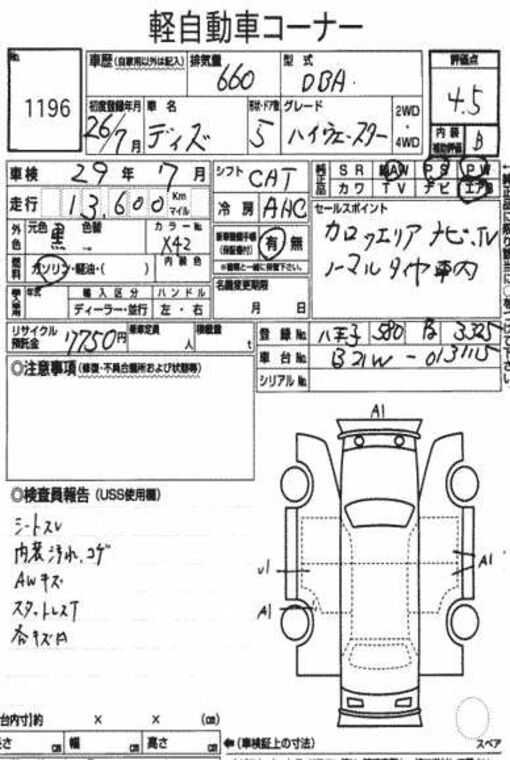 軽自動車コーナー
No. 1196
車歴(自家用以外は記入) 排気量 660 型式 DBA
評価点 4.5
初度登録年月 26/7月 車名 デイズ 形状・ドア数 5 グレード ハイウェースター 2WD・4WD
内装補助評価 B
車検 29年 7月 シフト CAT 純正品 SR AW PS PW
カワ TV ナビ エアB
走行 13,600 Km マイル 冷房 AAC
セールスポイント
外色 元色 黒 色替 → カラーNo. X42
新車整備手帳(保証書付) 有 無
※書類と一緒に保管下さい。
カロッツェリア ナビ.TV
ノーマルタイヤ車内
燃料 ガソリン・軽油・( ) 内装色
名義変更期限 月 日
輸入車用 年式 輸入区分 ハンドル
ディーラー・並行 左・右
リサイクル預託金 7750円 乗車定員 人 積載量 t
登録No. 八王子 580 3325
車台No. B21W-0131115
シリアルNo.
◎注意事項(修復・不具合箇所および状態等)
A1
◎検査員報告(USS使用欄)
シートスレ
内装汚れ.コゲ
AWキズ
スタットレスT
各キズA
U1
A1
A1
台内寸)約 × × (cm)
長さ cm 幅 cm 高さ cm ←(車検証上の寸法)
スペア